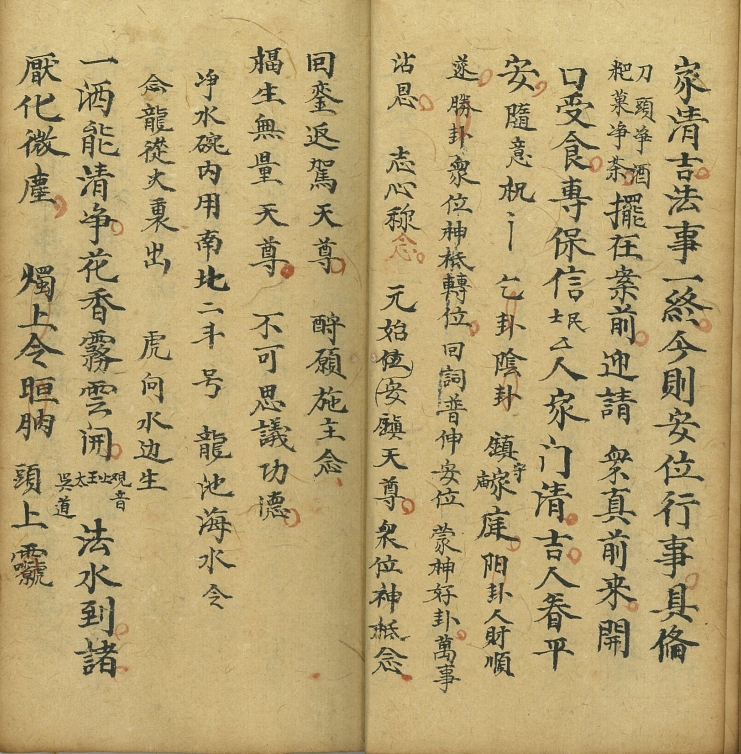 家清吉法事一終今則安位行事具俻
刀頭爭酒
粑菓净茶擺在案前迎請　衆真前来開
口受食專保信士民厶人家门清吉人眷平
安隨意祝〻　乞卦陰卦　鎮守家庭阳卦人財順
遂勝卦衆位神衹轉位回詞普伸安位　蒙神好卦萬事
沾恩　志心称念　元始安鎮天尊衆位神衹念
回銮返駕天尊　酧願施主念
福生無量天尊　不可思議功德
净水碗内用南北二斗号　龍池海水令
念龍從火裏出　虎向水边生
一洒能清净花香霧雲開　观音　太王　吳道　法水到諸
厭化微塵　燭上令　頭上